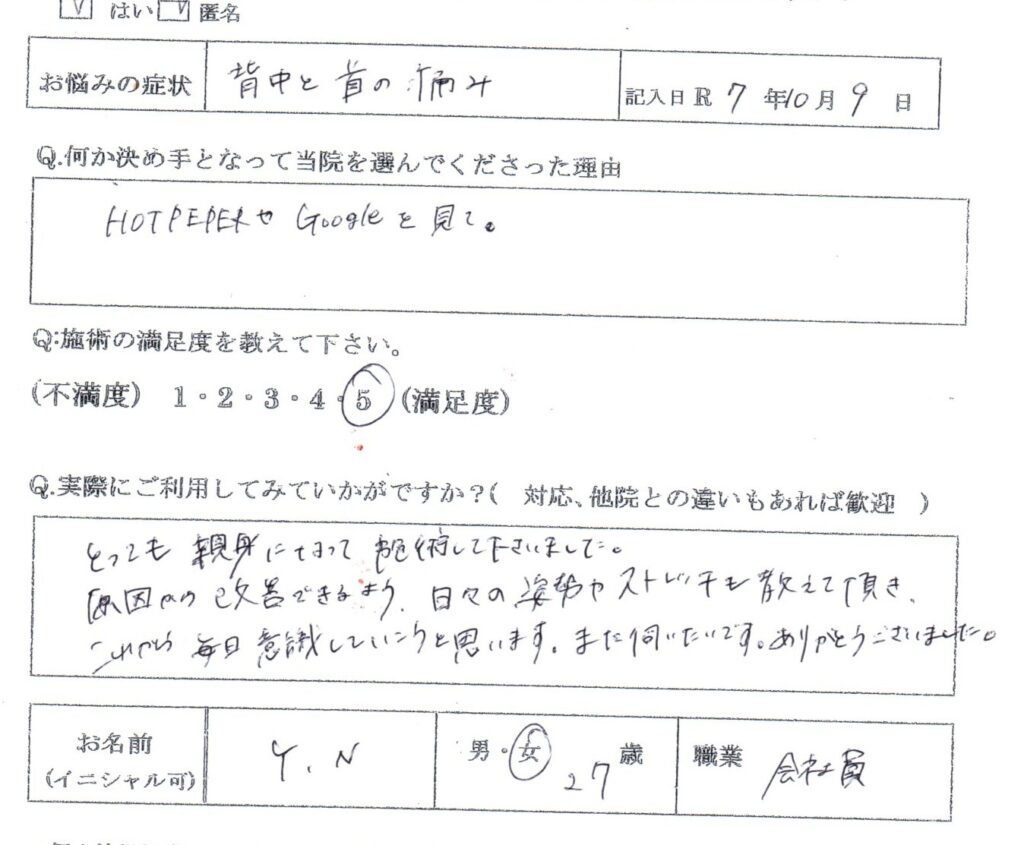 はい 匿名
お悩みの症状 背中と首の痛み 記入日 R 7 年 10 月 9 日
Q.何か決め手となって当院を選んでくださった理由
HOTPEPERや Googleを見て。
Q:施術の満足度を教えて下さい。
(不満度) 1・2・3・4・5 (満足度)
Q.実際にご利用してみていかがですか?( 対応、他院との違いもあれば歓迎 )
とっても 親身になって 施術して下さいました。
原因から改善できるよう、日々の姿勢やストレッチも教えて頂き、
これから毎日意識していこうと思います。また伺いたいです。ありがとうございました。
お名前 Y.N 男・女 27 歳 職業 会社員
(イニシャル可)